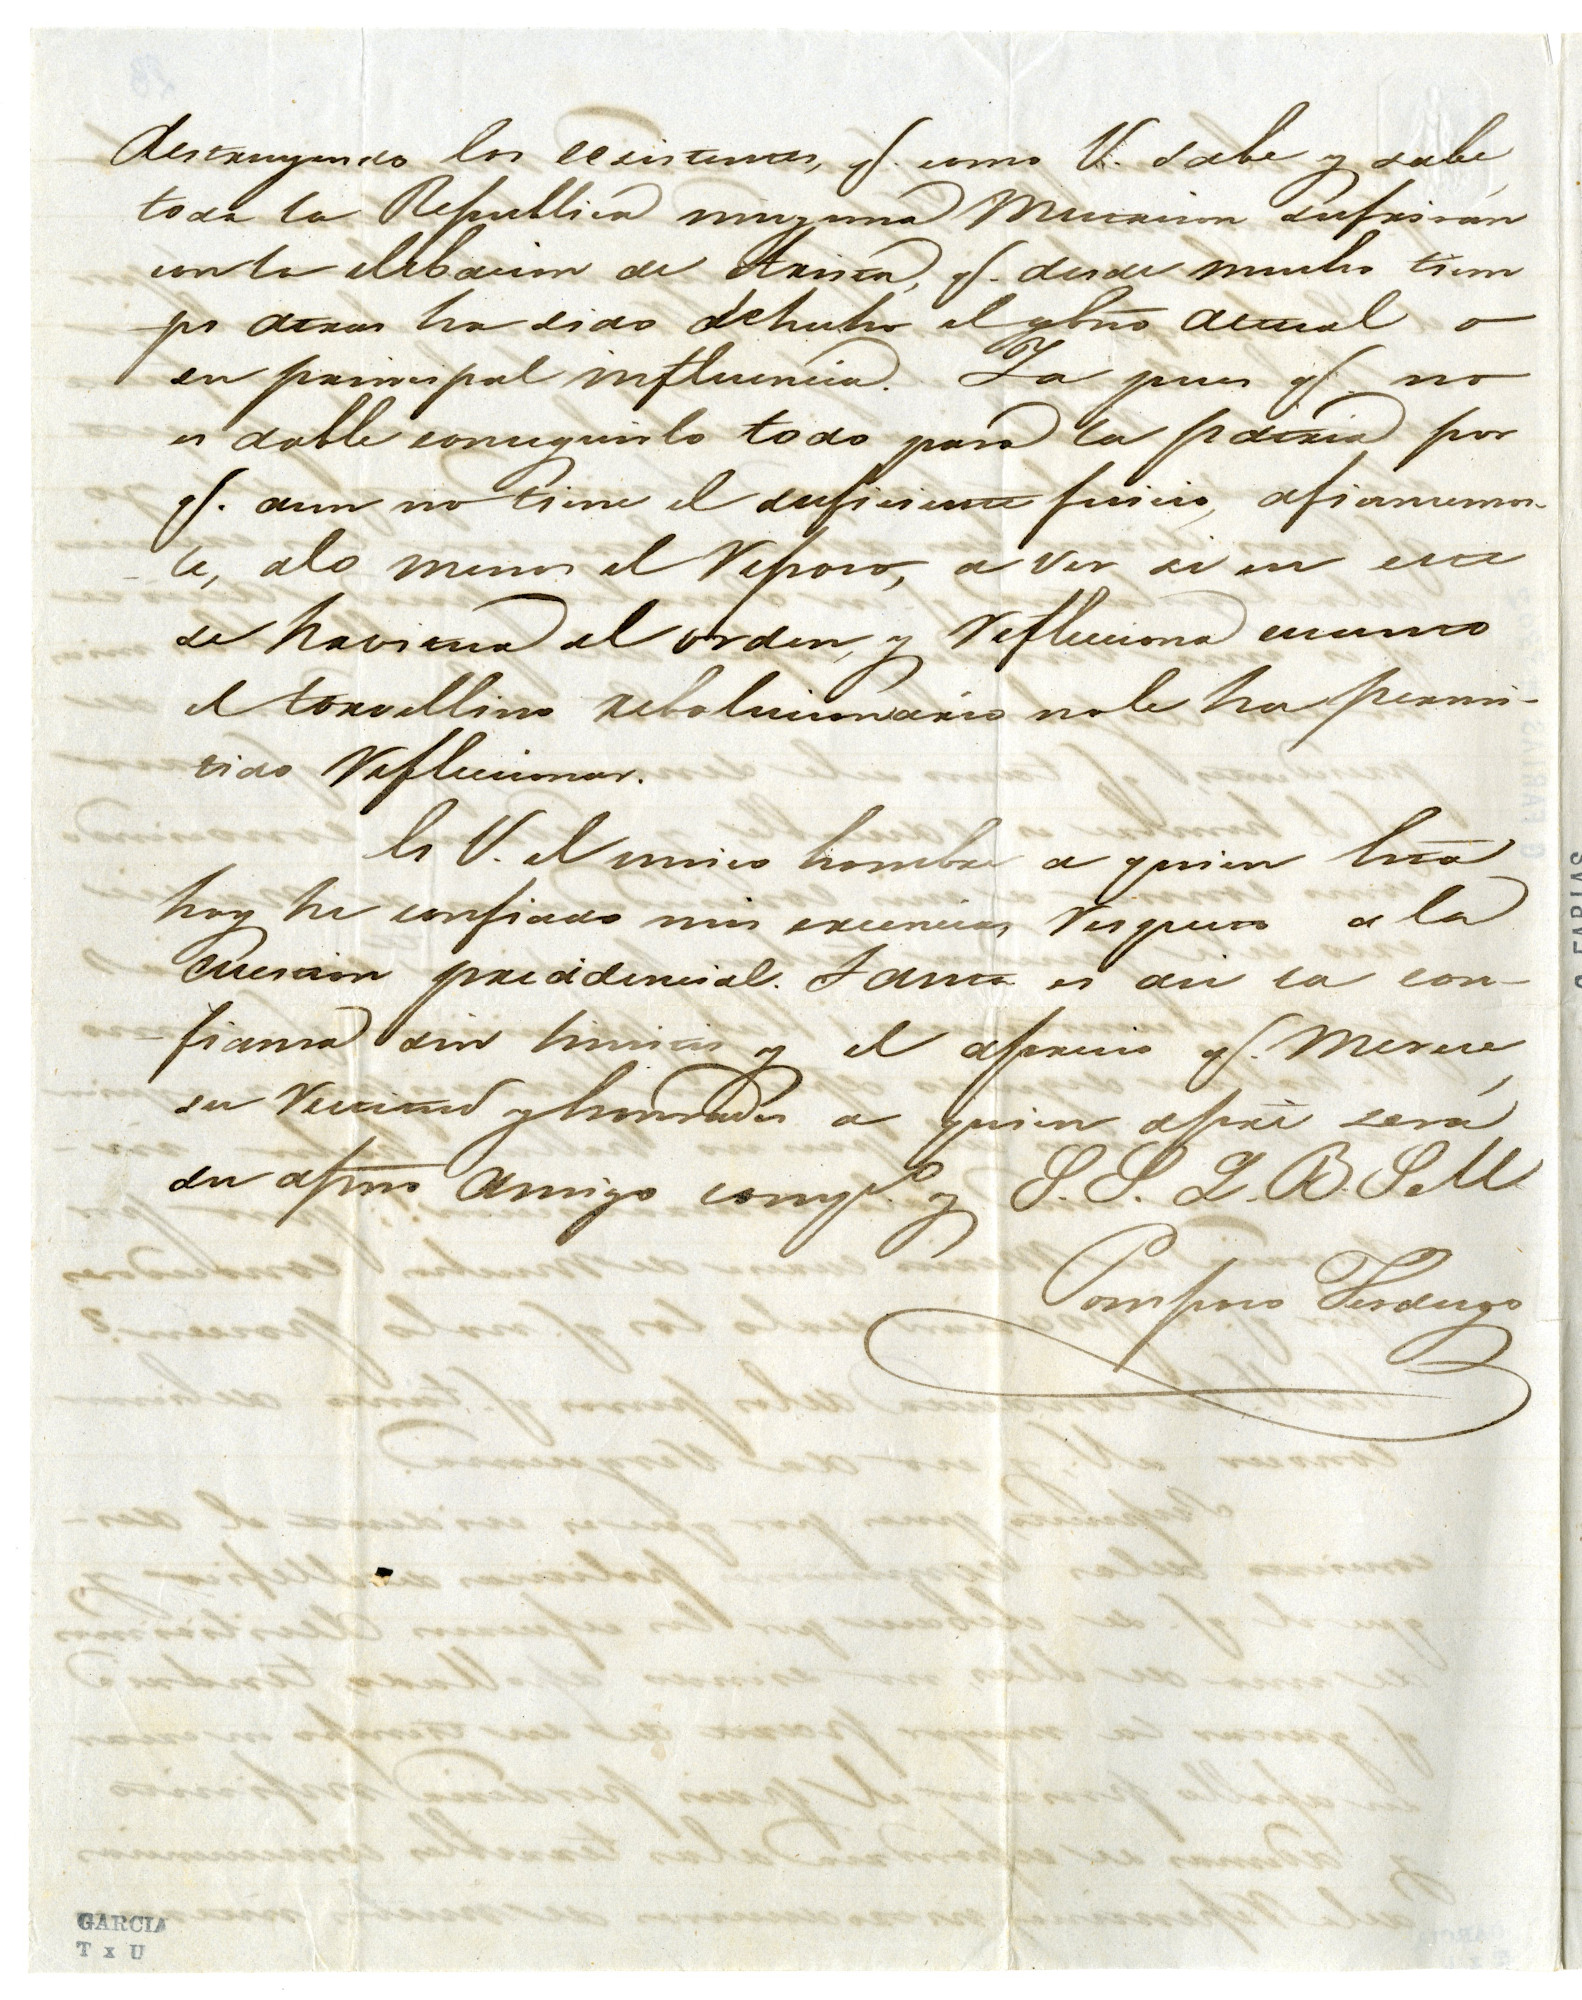 destruyendo los ecsistentes, q.e como V. sabe y sabe
toda la Republica ninguna Mutacion sufriran
con la elebacion de Arista, q.e desde mucho tiem
po atras ha sido dehecho el gbno actual o
su principal influencia. Ya pues q.e no
es dable conseguirlo todo para la patria por
q.e aun no tiene el suficiente juicio, afiancemos-
le, alo menos el Reposo, a ver si en este
se havitua al orden, y Reflecciona cuanto
el torvellino rebolucionario nole ha permi-
tido Refleccionar.
Es V. el unico hombre a quien hta
hoy he confiado mis creencias Respecto a la
Cuestion precidencial. Tanta es asi la con-
fianza sin limites y el aprecio q.e Merece
su Rectitud y honrradez a quien apre será
su afmo Amigo comp.o y S. S. Q. B. S. M
Pomposo Verdugo
GARCIA
T x U
G FARIAS